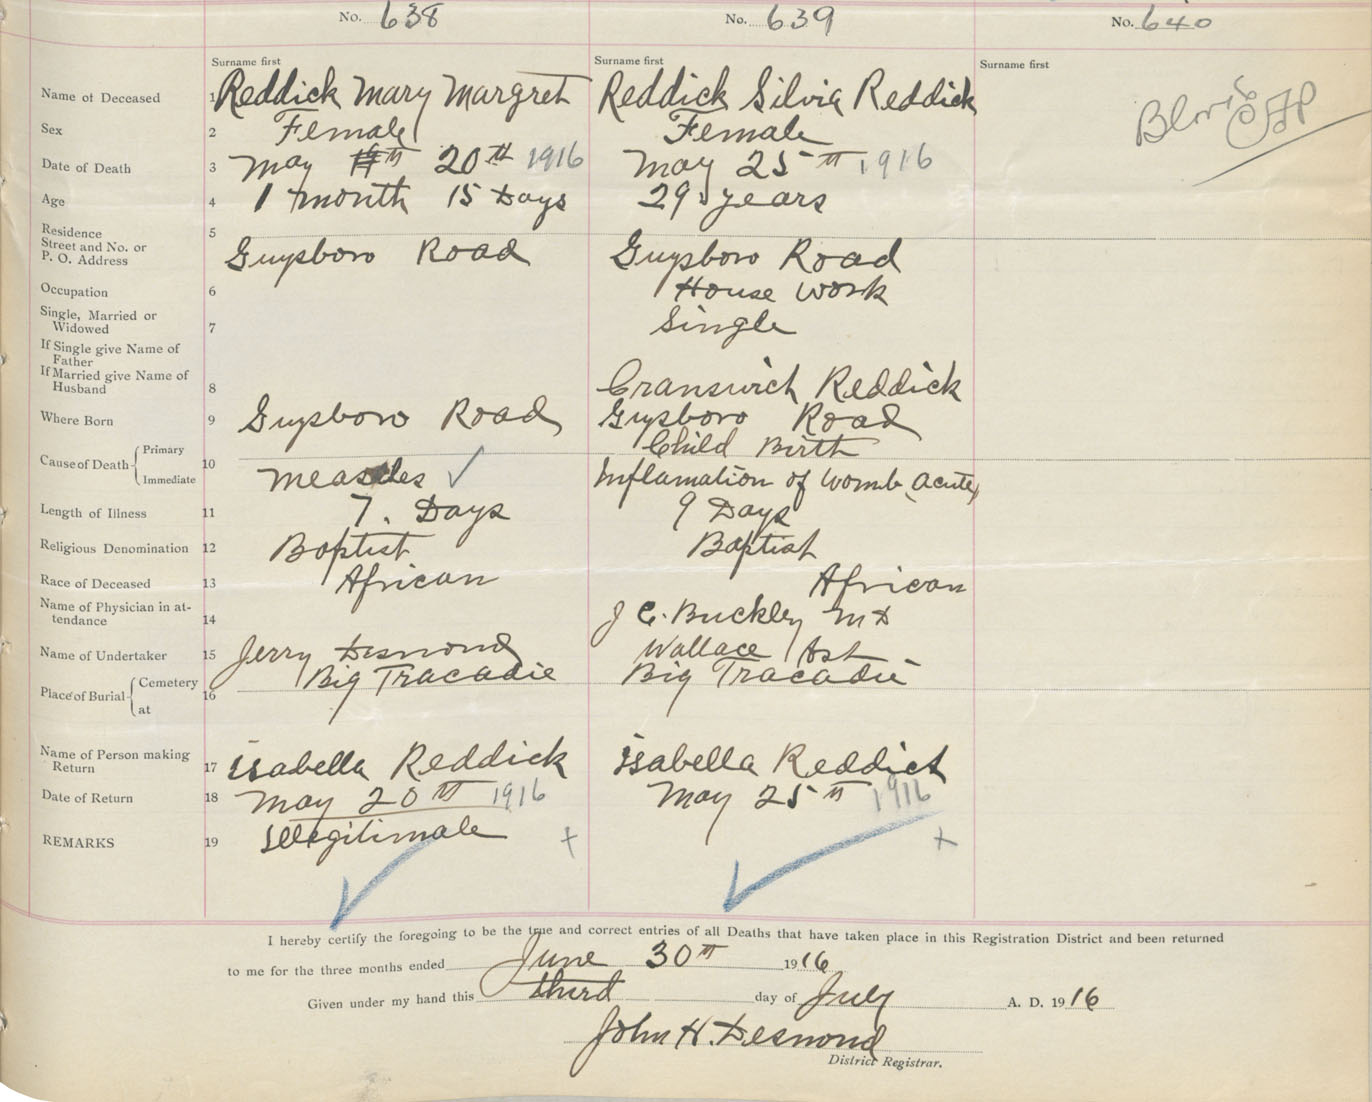 No. 638 No. 639 No. 640
Surname first Surname first Surname first
Name of Deceased 1 Reddick Mary Margret Reddick Silvia Reddick
Sex 2 Female Female
Date of Death 3 May 20th 1916 May 25th 1916
Age 4 1 month 15 Days 29 years
Residence 5
Street and No. or
P. O. Address Guysboro Road Guysboro Road
Occupation 6 House Work
Single, Married or
Widowed 7 Single
If Single give Name of
Father
If Married give Name of
Husband 8 Cranswich Reddick
Where Born 9 Guysboro Road Guysboro Road
Cause of Death Primary 10 Child Birth
Immediate Measles Inflamation of womb (acute)
Length of Illness 11 7. Days 9 Days
Religious Denomination 12 Baptist Baptist
Race of Deceased 13 African African
Name of Physician in at-
tendance 14 J C. Buckley MD
Name of Undertaker 15 Jerry Desmond Wallace
Place of Burial Cemetery 16 Big Tracadie Big Tracadie
at
Name of Person making
Return 17 isabella Reddick isabella Reddick
Date of Return 18 May 20th 1916 May 25th 1916
REMARKS 19 Illegitimate
I hereby certify the foregoing to be the true and correct entries of all Deaths that have taken place in this Registration District and been returned
to me for the three months ended June 30th 1916
Given under my hand this third day of July A. D. 1916
John H. Desmond
District Registrar.